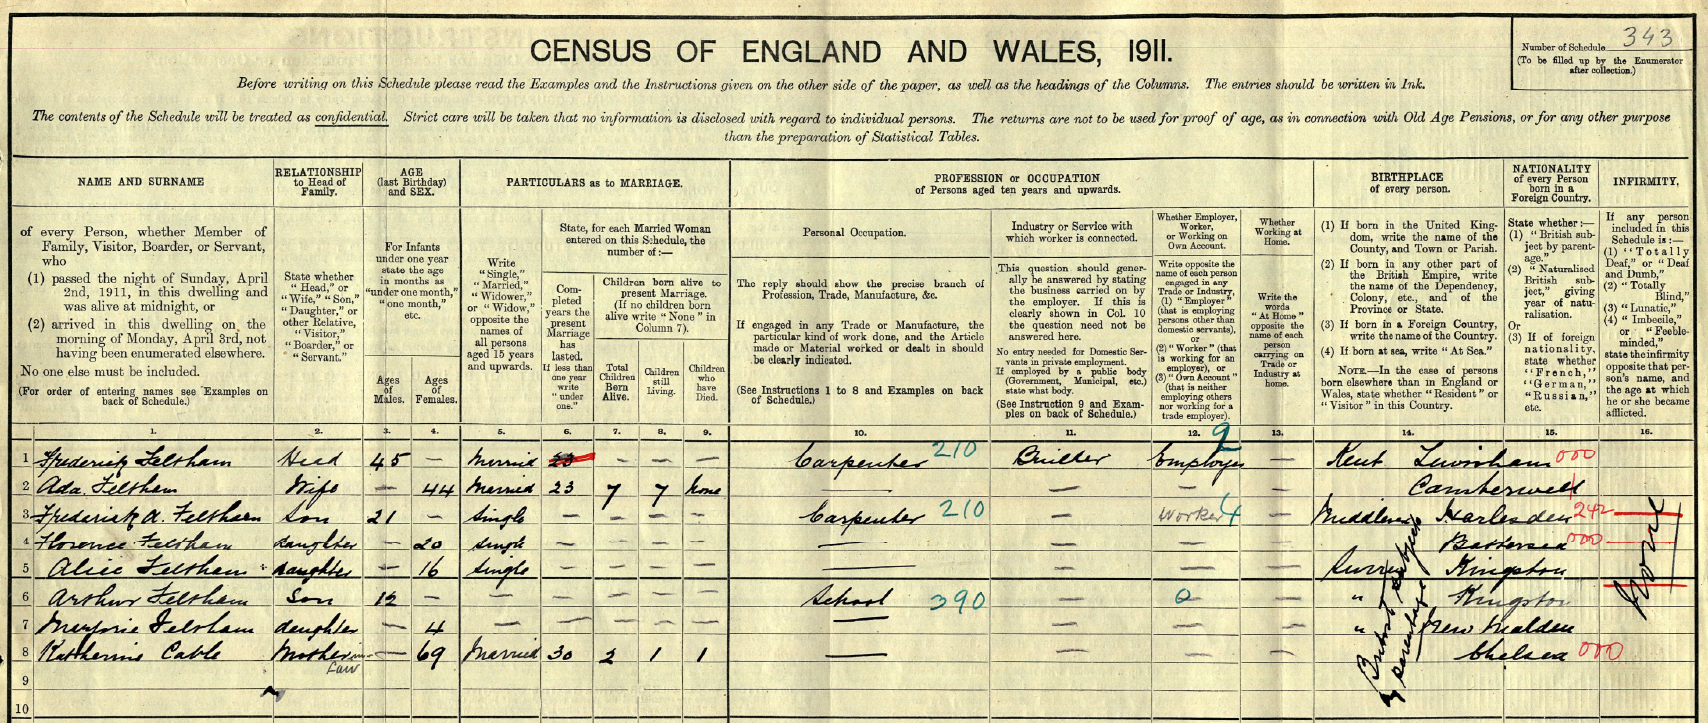 CENSUS OF ENGLAND AND WALES, 1911.
Number of Schedule 343
(To be filled up by the Enumerator
after collection.)
Before writing on this Schedule please read the Examples and the Instructions given on the other side of the paper, as well as the headings of the Columns. The entries should be written in Ink.
The contents of the Schedule will be treated as confidential. Strict care will be taken that no information is disclosed with regard to individual persons. The returns are not to be used for proof of age, as in connection with Old Age Pensions, or for any other purpose
than the preparation of Statistical Tables.
NAME AND SURNAME
of every Person, whether Member of
Family, Visitor, Boarder, or Servant,
who
(1) passed the night of Sunday, April
2nd, 1911, in this dwelling and
was alive at midnight, or
(2) arrived in this dwelling on the
morning of Monday, April 3rd, not
having been enumerated elsewhere.
No one else must be included.
(For order of entering names see Examples on
back of Schedule.)
RELATIONSHIP
to Head of
Family.
State whether
"Head," or
"Wife," "Son,"
"Daughter," or
other Relative,
"Visitor,"
"Boarder," or
"Servant."
AGE
(last Birthday)
and SEX.
For Infants
under one year
state the age
in months as
"under one month,"
"one month,"
etc.
Ages
of
Males.
Ages
of
Females.
PARTICULARS as to MARRIAGE.
Write
"Single,"
"Married,"
"Widower,"
or "Widow,"
opposite the
names of
all persons
aged 15 years
and upwards.
State, for each Married Woman
entered on this Schedule, the
number of:—
Com-
pleted
years the
present
Marriage
has
lasted.
If less than
one year
write
"under
one."
Children born alive to
present Marriage.
(If no children born
alive write "None" in
Column 7).
Total
Children
Born
Alive.
Children
still
Living.
Children
who
have
Died.
PROFESSION or OCCUPATION
of Persons aged ten years and upwards.
Personal Occupation.
The reply should show the precise branch of
Profession, Trade, Manufacture, &c.
If engaged in any Trade or Manufacture, the
particular kind of work done, and the Article
made or Material worked or dealt in should
be clearly indicated.
(See Instructions 1 to 8 and Examples on back
of Schedule.)
Industry or Service with
which worker is connected.
This question should gener-
ally be answered by stating
the business carried on by
the employer. If this is
clearly shown in Col. 10
the question need not be
answered here.
No entry needed for Domestic Ser-
vants in private employment.
If employed by a public body
(Government, Municipal, etc.)
state what body.
(See Instruction 9 and Exam-
ples on back of Schedule.)
Whether Employer,
Worker,
or Working on
Own Account.
Write opposite the
name of each person
engaged in any
Trade or Industry,
(1) "Employer"
(that is employing
persons other than
domestic servants),
or
(2) "Worker" (that
is working for an
employer), or
(3) "Own Account"
(that is neither
employing others
nor working for a
trade employer).
Whether
Working at
Home.
Write the
words
"At Home"
opposite the
name of each
person
carrying on
Trade or
Industry at
home.
BIRTHPLACE
of every person.
(1) If born in the United King-
dom, write the name of the
County, and Town or Parish.
(2) If born in any other part of
the British Empire, write
the name of the Dependency,
Colony, etc., and of the
Province or State.
(3) If born in a Foreign Country,
write the name of the Country.
(4) If born at sea, write "At Sea."
NOTE.—In the case of persons
born elsewhere than in England or
Wales, state whether "Resident" or
"Visitor" in this Country.
NATIONALITY
of every Person
born in a
Foreign Country.
State whether:—
(1) "British sub-
ject by parent-
age."
(2) "Naturalised
British sub-
ject," giving
year of natu-
ralisation.
Or
(3) If of foreign
nationality,
state whether
"French,"
"German,"
"Russian,"
etc.
INFIRMITY.
If any person
included in this
Schedule is:—
(1) "Totally
Deaf," or "Deaf
and Dumb,"
(2) "Totally
Blind,"
(3) "Lunatic,"
(4) "Imbecile,"
or "Feeble-
minded,"
state the infirmity
opposite that per-
son's name, and
the age at which
he or she became
afflicted.
1. 2. 3. 4. 5. 6. 7. 8. 9. 10. 11. 12. 13. 14. 15. 16.
1 Frederick Feltham Head 45 — Married 23 — — — Carpenter 210 Builder Employer 2 — Kent Lewisham 000
2 Ada Feltham Wife — 44 Married 23 7 7 None — — — — Camberwell
3 Frederick A. Feltham Son 21 — Single — — — — Carpenter 210 — Worker 4 — Middlesex Harlesden 242
4 Florence Feltham daughter — 20 Single — — — — — — — — Battersea 000
5 Alice Feltham daughter — 16 Single — — — — — — — — Surrey Kingston
6 Arthur Feltham Son 12 — — — — — School 390 — 0 — " Kingston
7 Marjorie Feltham daughter — 4 — — — — — — — — " New Malden
8 Katherine Cable Mother in Law — 69 Married 30 2 1 1 — — — — Chelsea 000
9
10
British subject
by parentage
None